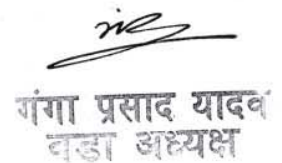 गंगा प्रसाद यादव
वडा अध्यक्ष